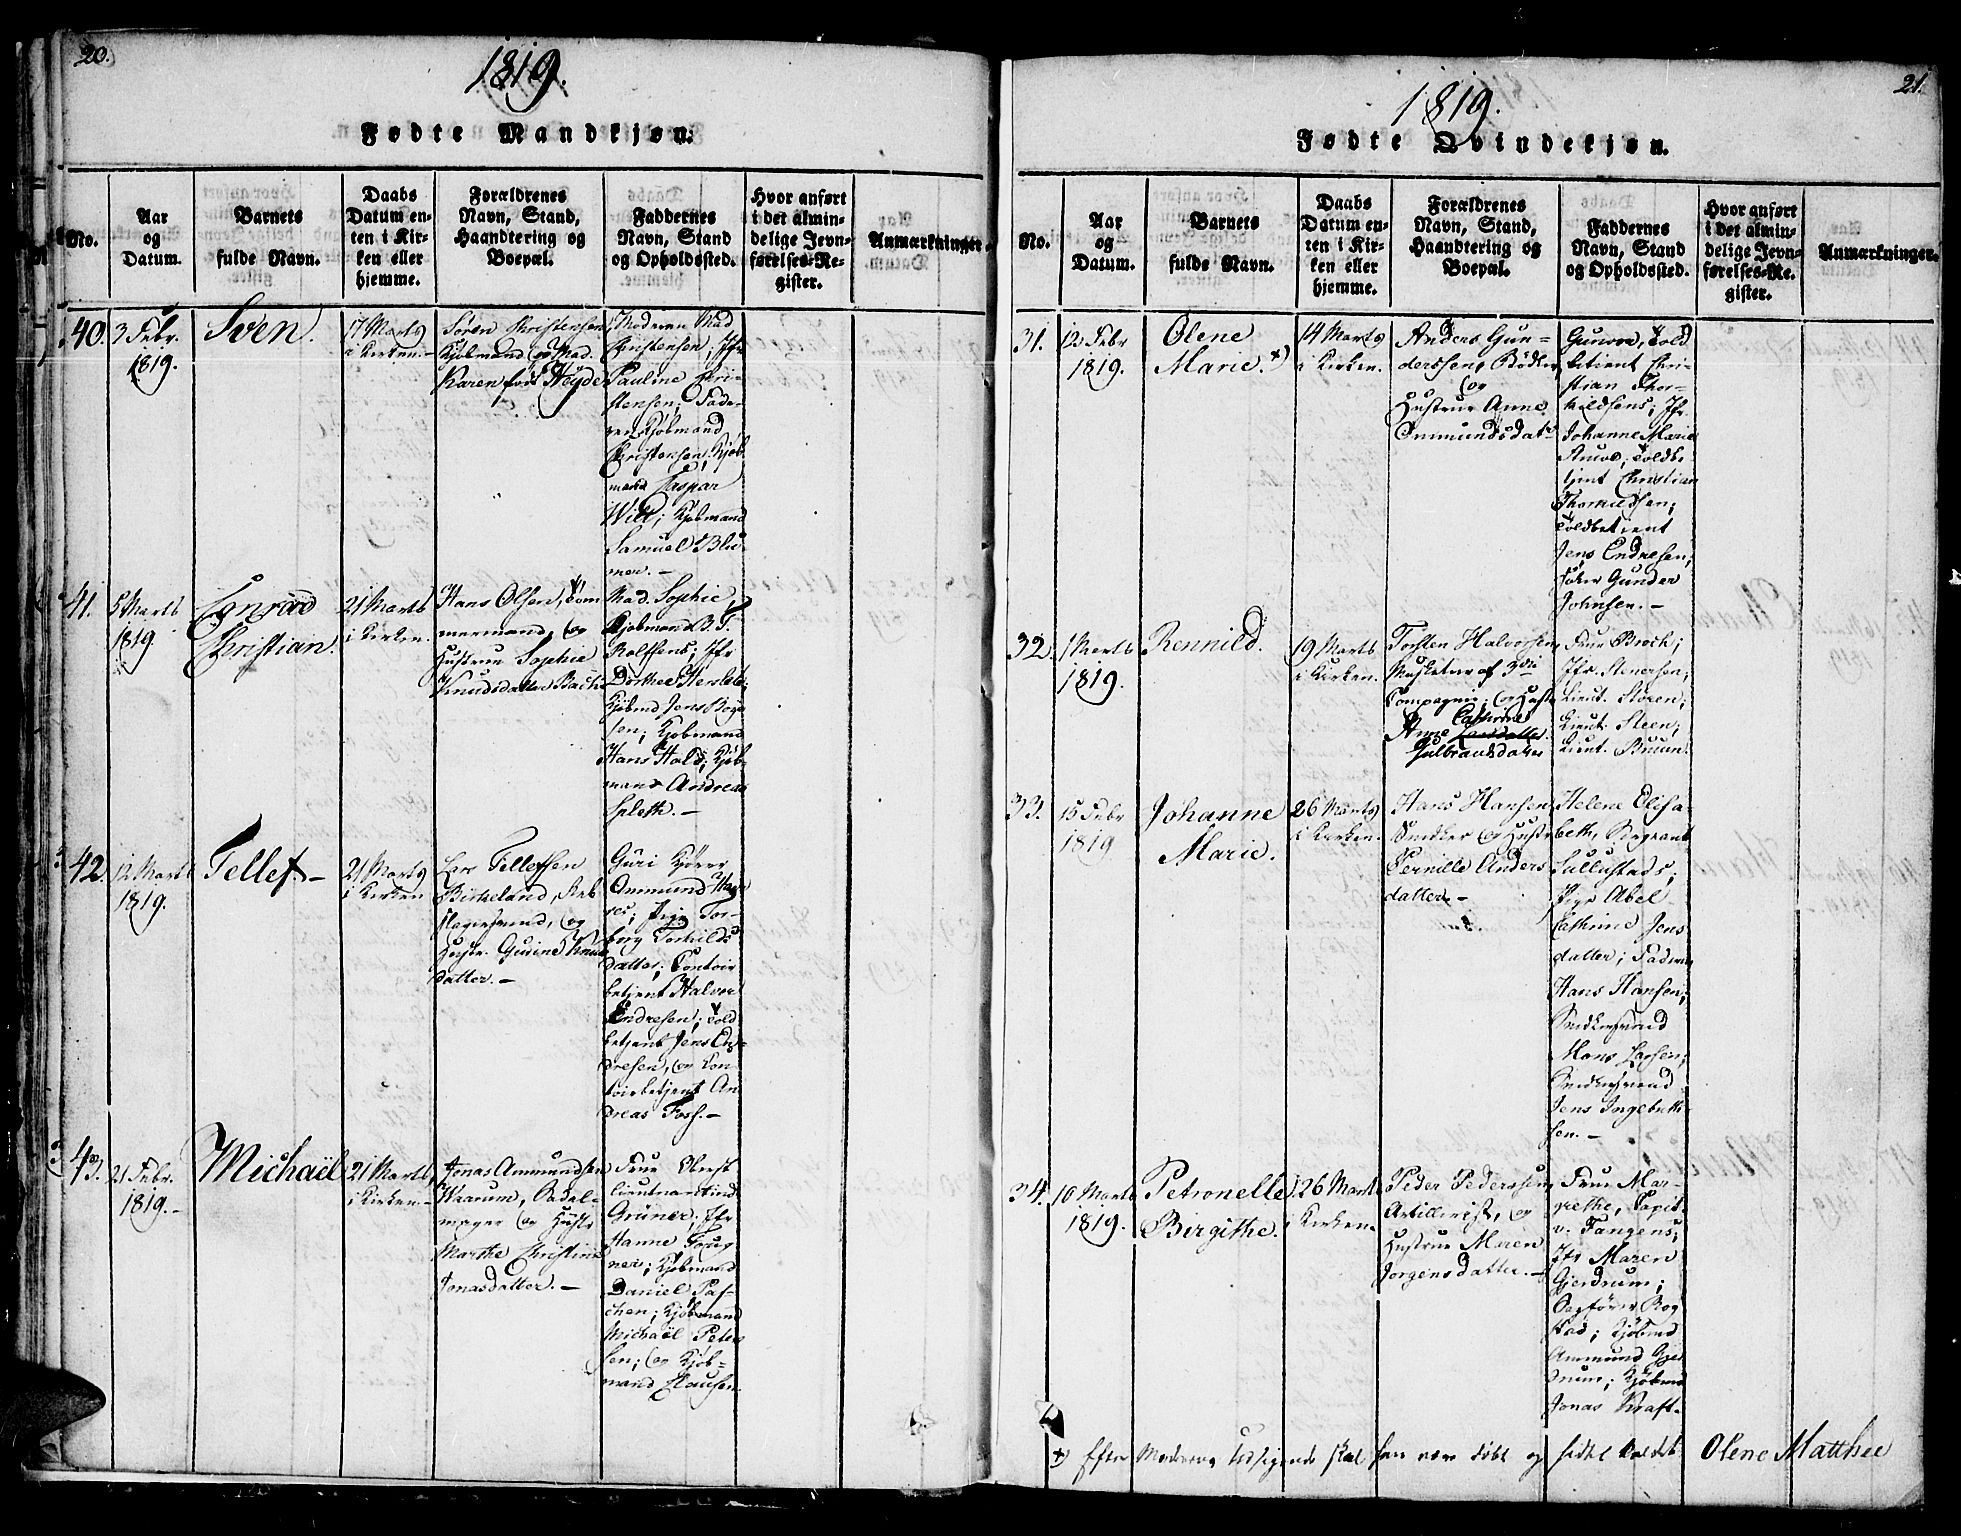 20.
1819.
Fødte Mandkjøn.
No.
Aar
og
Datum.
Barnets
fulde Navn.
Daabs
Datum en-
ten i Kir-
ken eller
hjemme.
Forældrenes
Navn, Stand,
Haandtering og
Boepæl.
Faddernes
Navn, Stand
og Opholdssted.
Hvor anført
i det almin-
delige Jevn-
førelses-Re-
gister.
Anmærkninger.
40.
3 Febr.
1819.
Sven.
17 Marts
i Kirken.-
Sören Christensen,
Kjöbmand og Mad.
Karen föd Heyde
Moderen Mad
Christensen; Jfr
Pauline Chri-
stensen; Fade-
ren Kjöbmand
Christensen; Kjöb
mand Caspar
Wild; Kjöbmand
Samuel Blu
mer. -
41.
5 Marts
1819.
Conrad
Christian.
21 Marts
i Kirken.
Hans Olsen, Töm
mermand, og
Hustrue Sophie
Knudsdatter Bache
Mad. Sophie,
Kjobmand B. T.
Rolfsens; Jfr
Dorthee Herslebs;
Kjöbmd Jens Boye
sen; Kjobmand
Hans Hald; Kjöb
mand Andreas
Spleth. -
42.
12 Marts
1819.
Tellef -
21 Marts
i Kirken
Lars Tellefsen
Birkeland,
og
Hustr. Gurine Knuds
datter. -
Guri
Ommund
Pige Tor-
borg Torkilds
datter; Contoir
betjent Halvor
Endresen; Told
betjent Jens En-
dresen, og Con
toirbetjent An
dreas Foss. -
43.
21 Febr.
1819. -
Michaël
21 Marts
i Kirken -
Jonas Ammundsen
Waarum, Sadel-
mager og Hustr
Marthe Christine
Jonasdatter. -
Frue Oberst
lieutnantind
Grüner; Jfr
Hanne Foug
ner; Kjöbmand
Daniel Pas-
chen; Kjöbmand
Michaël Peter
sen; og Kjöb-
mand Clausen.
21.
1819.
Fødte Qvindekjøn.
No.
Aar
og
Datum.
Barnets
fulde Navn.
Daabs
Datum en-
ten i Kir-
ken eller
hjemme.
Forældrenes
Navn, Stand,
Haandtering og
Boepæl.
Faddernes
Navn, Stand
og Opholdssted.
Hvor anført
i det almin-
delige Jevn-
førelses-Re-
gister.
Anmærkninger.
31.
12 Febr
1819.
Olene
Marie. +)
14 Marts
i Kirken.
Anders Gun-
derssen, Bödker
og
Hustrue Anne
Ommundsdatr
Gunvor, Told
betient Chri-
stian Thor-
kildsens; Jfr
Johanne Marie
Toldbe
tjent Christian
Thorkildsen;
Toldbetient
Jens Endresen;
Gunder
Johnsen. -
32.
1 Marts
1819.
Rennild.
19 Marts
i Kirken.
Torsten Halvorsen,
Musketeer af 3die
Compagnie; og Hustr
Anne Cathrine
Gulbrandsdatter
Frue Brock;
Jfr. Stenersen;
Lieut. Stören;
Lieut. Steen;
Lieut. Bruun.
33.
15 Febr
1819
Johanne
Marie.
26 Marts
i Kirken.
Hans Hansen
Snedker og Hustr
Pernille Anders
datter. -
Helene Elisa-
beth, Sergeant
Sullustads;
Pige Abel
Cathrine Jens
datter; Faderen
Hans Hansen;
Snedkersvend
Mons Larsen;
Snedkersvend
Jens Ingebreth
sen. -
34.
10 Marts
1819.
Petronelle
Birgithe.
26 Marts
i Kirken.
Peder Pederssen
Artillerist, og
Hustrue Maren
Jorgensdatter. -
Frue Mar-
grethe, Capit
v. Fangens;
Jfr Maren
Gjerdrum;
Sagförer Rog
stad; Kjöbmd
Ammund Gjer
drum; Kjöbmd
Jonas Kraft. -
+) Efter Moderens Udsigende skal hun være döbt og siden kaldet Olene Matthee